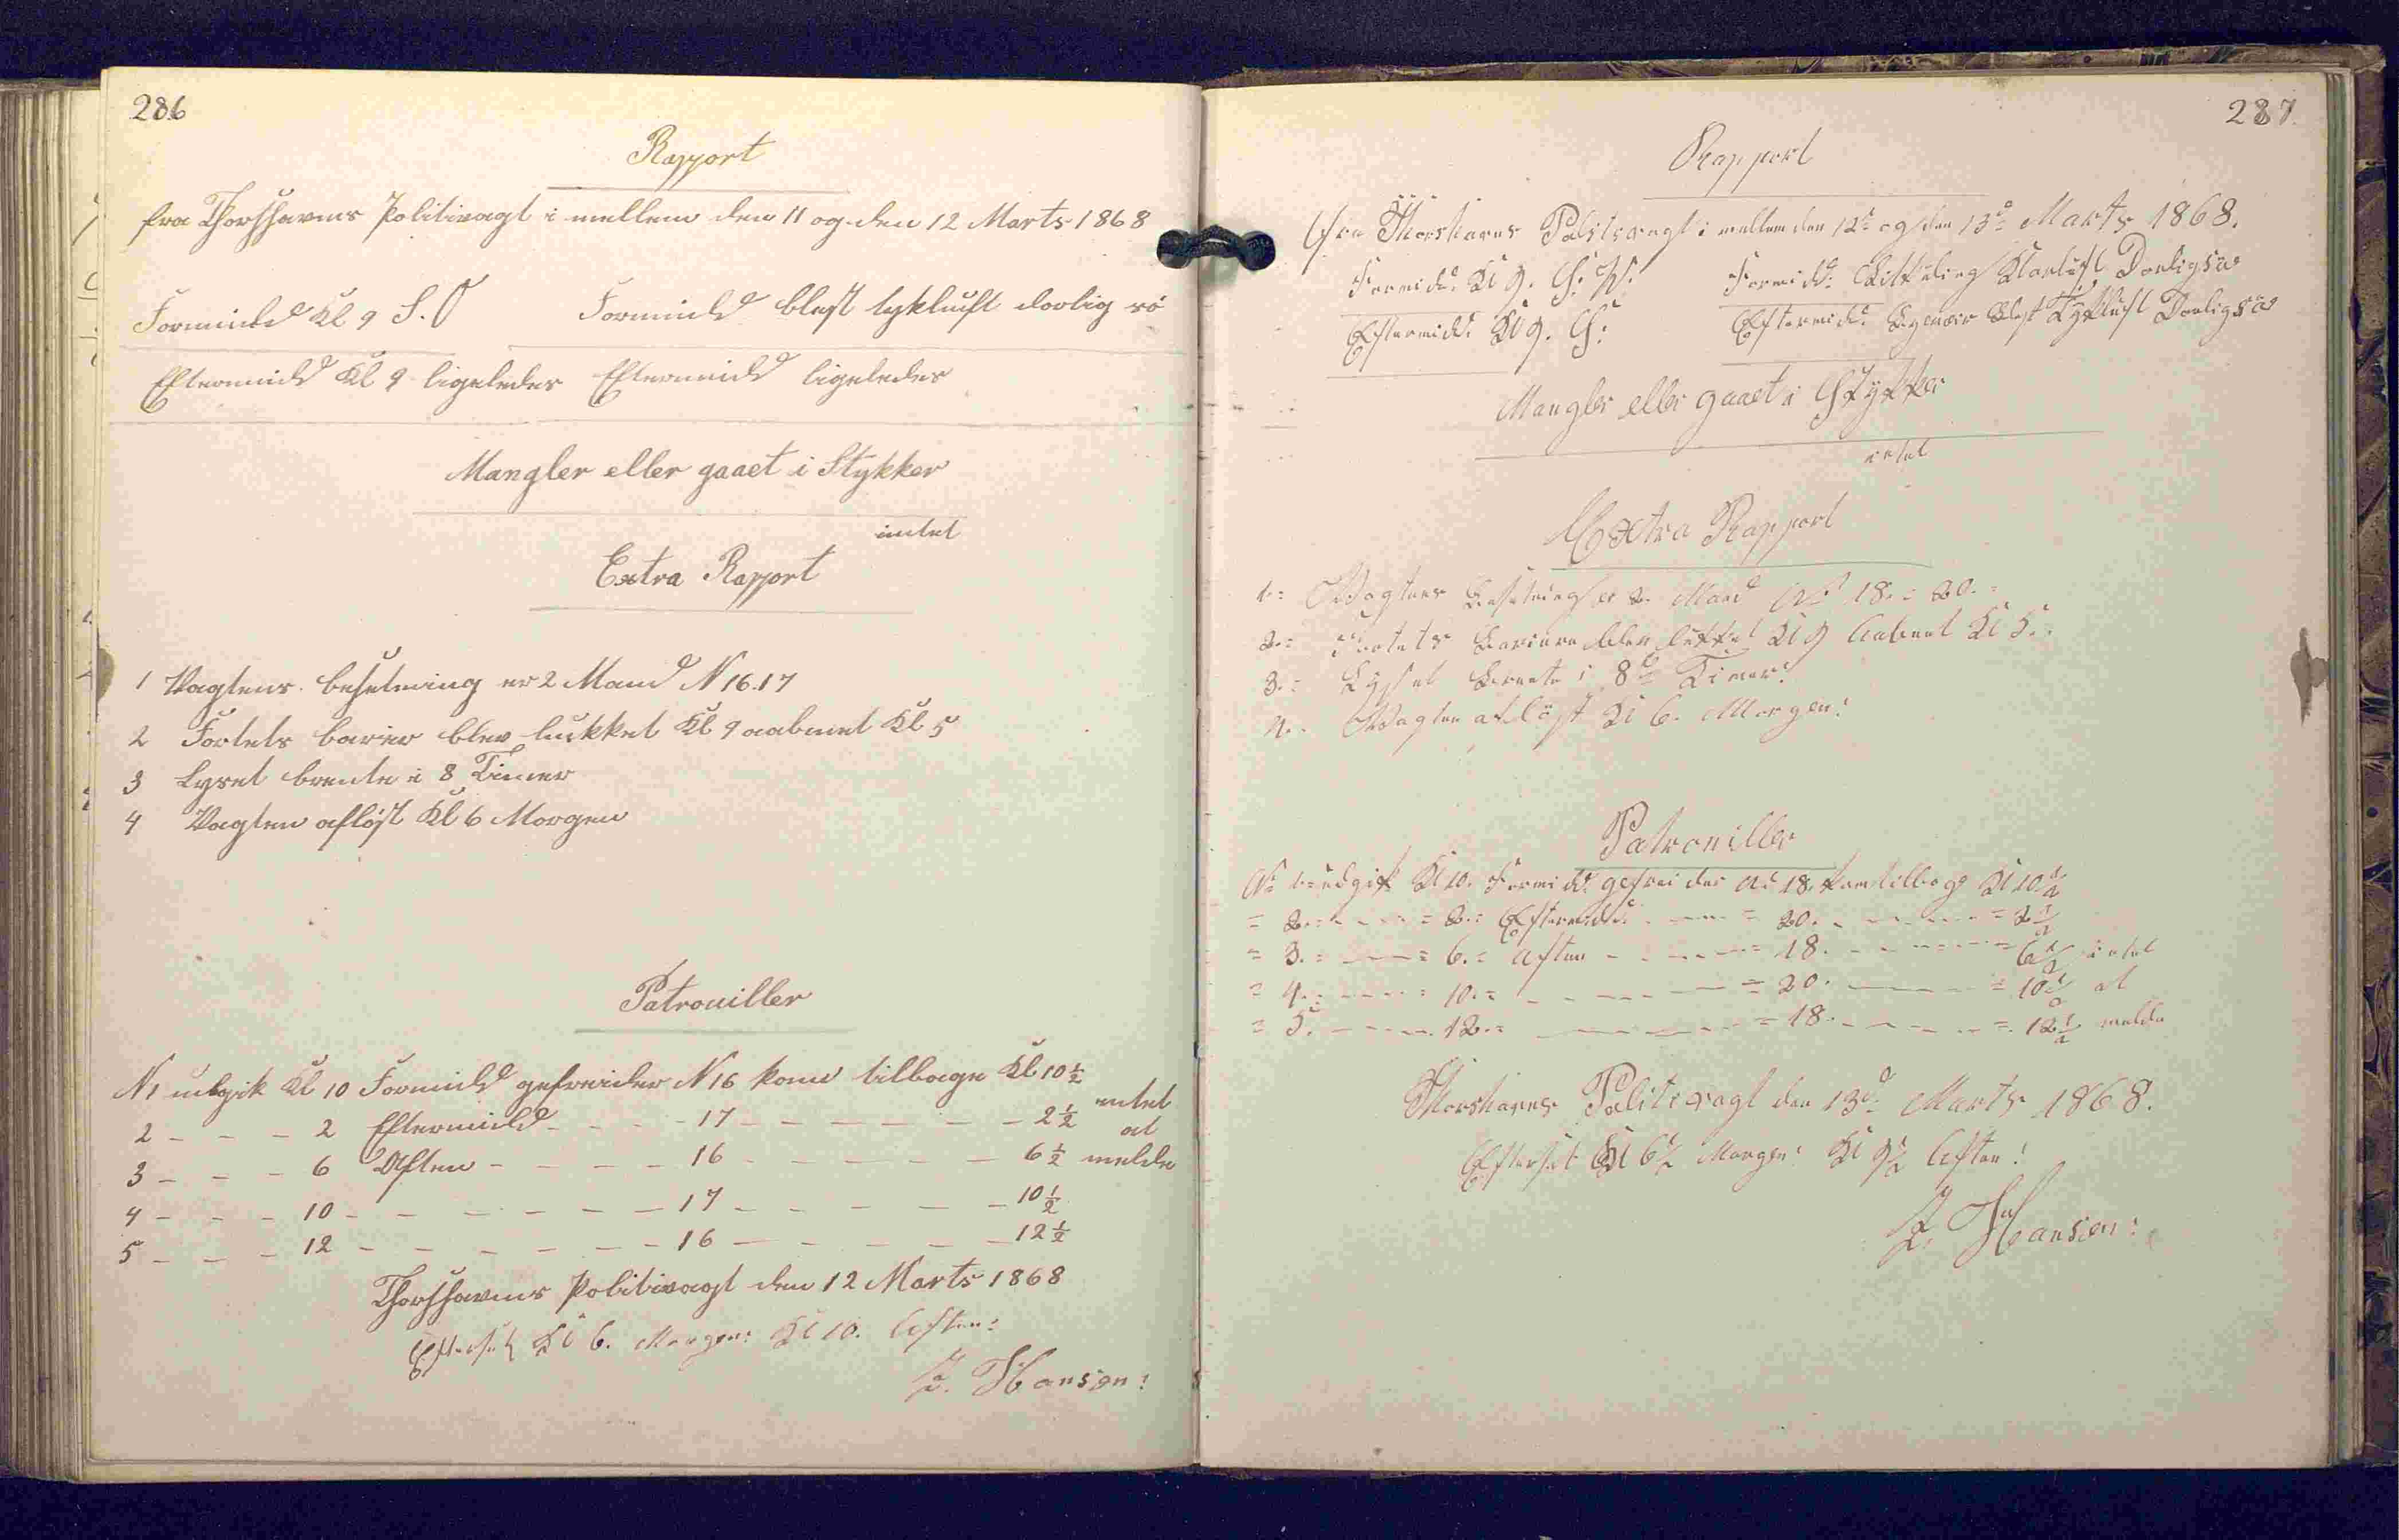 286
Rapport
fra Thorshavns Politivagt i mellem den 11 og den 12 Marts 1868
Formidd Kl 9 S.O Formidd blest tykluft dorlig sö
Eftermidd Kl 9 ligeledes Eftermidd ligeledes
Mangler eller gaaet i Stykker
intet
Extra Rapport
1 Vagtens besetning er 2 Mand N 16.17
2 Fortets barier blev lukket Kl 9 aabnet Kl 5
3 Lyset brente i 8 Timer
4 Vagten afløst Kl 6 Morgen
Patrouiller
N1 udgik Kl 10 Formidd gefreider N16 kom tilbage Kl 10 1/2
2 - - - 2 Eftermidd - - - - 17 - - - - - - 2 1/2 intet at
3 - - - 6 Aften - - - - 16 - - - - - 6 1/2 melde
4 - - - 10 - - - - - - - 17 - - - - - - 10 1/2
5 - - - 12 - - - - - - - 16 - - - - - 12 1/2
Thorshavns Politivagt den 12 Marts 1868
Efterset Kl 6. Morgen: Kl 10. Aften:
Z. Hansen:
287
Rapport
fra Thorshavns Politivagt i mellem den 12te og den 13de Marts 1868.
Formidd: Kl 9. S: V: Formidd: Kluftl Daarligsöe
Eftermidd: Kl 9. S: Eftermidd: Blest Tykluft Daarligsöe
Mangler eller gaaet i Stykker
intet
Extra Rapport
1.= Vagtens Besetning er 2. Mand No 18. = 20. =
2.= Fortets Bariere blev lukket Kl 9 Aabnet Kl 5.
3.= Lyset Brente i 8te Timer:
4.. Vagten aflöst Kl 6. Morgen:
Patrouiller
No 1= udgik Kl 10. Formidd: gefreider No 18. kom tilbage Kl 10 1/2
= 2.= - - - = 2.= Eftermidd: - - - = 20. - - - - = 2 1/2
= 3.= - - - = 6.= Aften - - - - = 18. - - - - = 6 1/2 intet
= 4.= - - - = 10.= - - - - - = 20. - - - = 10 1/2 at
= 5. - - - - 12.= - - - - = 18. - - - - = 12 1/2 melde
Thorshavns Politivagt den 13de Marts 1868.
Efterset Kl 6 1/2 Morgen: Kl 9 1/2 Aften!
Z. Hansen: